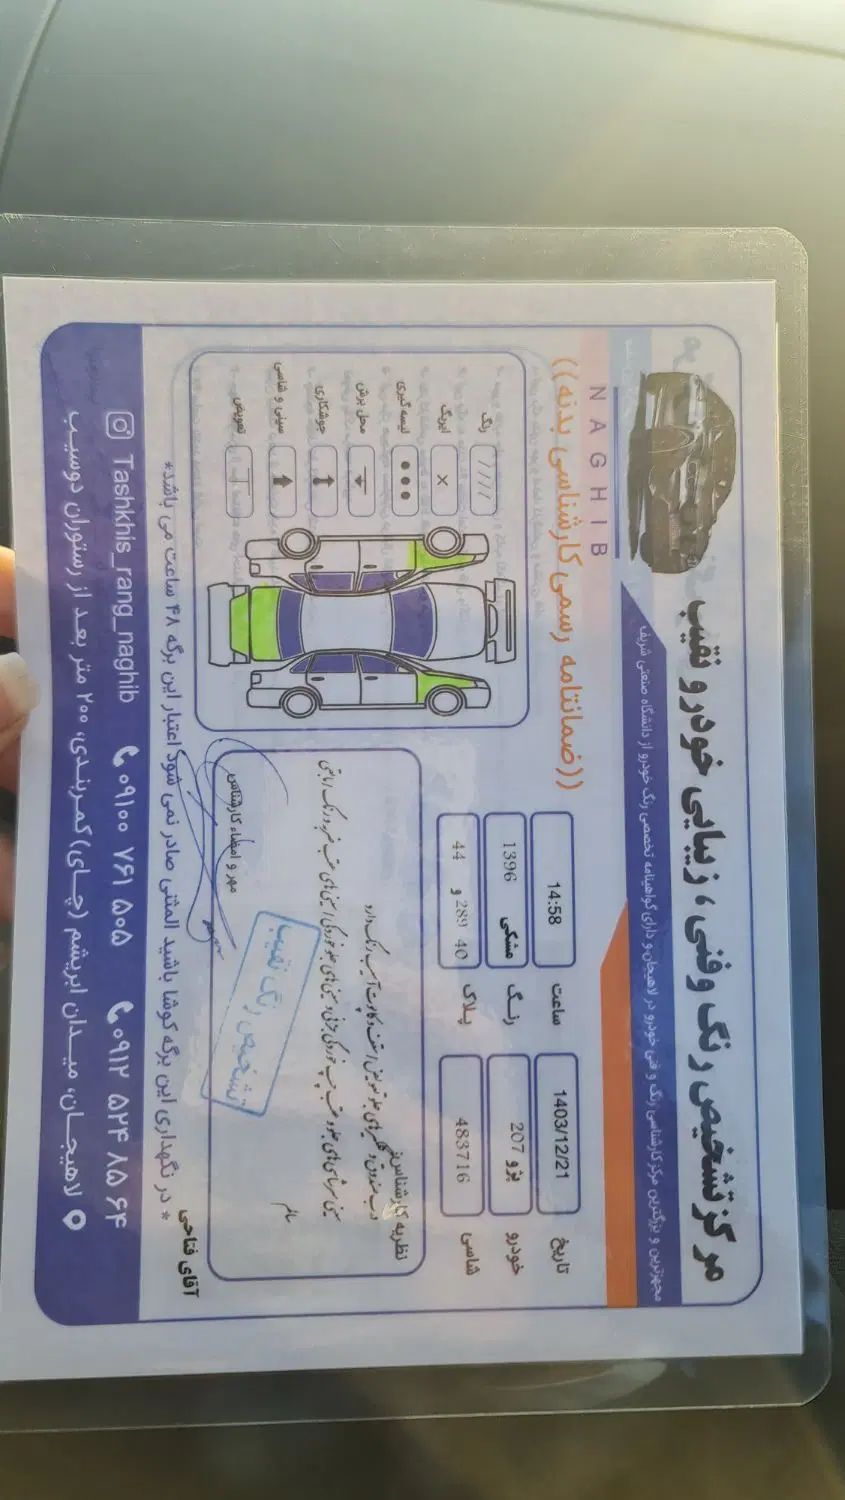 مرکز تشخیص رنگ و فنی، زیبایی خودرو نقیب
مجهزترین و بزرگترین مرکز کارشناسی رنگ و فنی خودرو در لاهیجان و دارای گواهینامه تخصصی رنگ خودرو از دانشگاه صنعتی شریف
NAGHIB
((ضمانتنامه رسمی کارشناسی بدنه))
تاریخ 1403/12/21 ساعت 14:58
خودرو پژو 207 رنگ مشکی 1396
شاسی 483716 پلاک 44 و 289 40
رنگ
آبرنگ
لیسه گیری
محل برش
جوشکاری
سینی و شاسی
تعویض
نظریه کارشناس:
درب صندوق و گلگیرهای جلو تعویض / سقف و کاپوت آسیب رنگ دارد
سالم
مهر و امضاء کارشناس
تشخیص رنگ نقیب
آقای فتاحی
* در نگهداری این برگه کوشا باشید المثنی صادر نمی شود اعتبار این برگه ۴۸ ساعت می باشد*
Tashkhis_rang_naghib ۰۹۱۰۰ ۷۶۱ ۵۰۵ ۰۹۱۲ ۵۲۴ ۸۵ ۶۴
لاهیجان، میدان ابریشم (چای) کمربندی، ۲۰۰ متر بعد از رستوران دوسیب